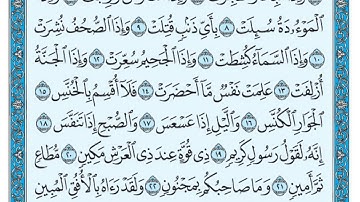 ٱلْمَوْءُۥدَةُ سُئِلَتْ ٨ بِأَىِّ ذَنۢبٍ قُتِلَتْ ٩ وَإِذَا ٱلصُّحُفُ نُشِرَتْ
١٠ وَإِذَا ٱلسَّمَآءُ كُشِطَتْ ١١ وَإِذَا ٱلْجَحِيمُ سُعِّرَتْ ١٢ وَإِذَا ٱلْجَنَّةُ
أُزْلِفَتْ ١٣ عَلِمَتْ نَفْسٌ مَّآ أَحْضَرَتْ ١٤ فَلَآ أُقْسِمُ بِٱلْخُنَّسِ ١٥
ٱلْجَوَارِ ٱلْكُنَّسِ ١٦ وَٱلَّيْلِ إِذَا عَسْعَسَ ١٧ وَٱلصُّبْحِ إِذَا تَنَفَّسَ ١٨
إِنَّهُۥ لَقَوْلُ رَسُولٍ كَرِيمٍ ١٩ ذِى قُوَّةٍ عِندَ ذِى ٱلْعَرْشِ مَكِينٍ ٢٠ مُّطَاعٍ
ثَمَّ أَمِينٍ ٢١ وَمَا صَاحِبُكُم بِمَجْنُونٍ ٢٢ وَلَقَدْ رَءَاهُ بِٱلْأُفُقِ ٱلْمُبِينِ